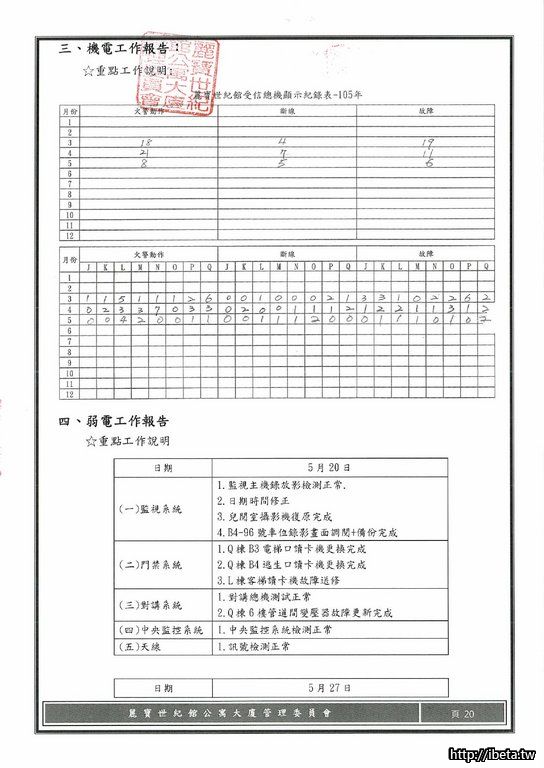 三、機電工作報告：
☆重點工作說明：
麗寶世紀館公寓大廈管理委員會
麗寶世紀館受信總機顯示紀錄表-105年
月份 火警動作 斷線 故障
1
2
3 18 4 19
4 21 7 11
5 8 5 6
6
7
8
9
10
11
12
月份 火警動作 斷線 故障
J K L M N O P Q J K L M N O P Q J K L M N O P Q
1
2
3 1 1 5 1 1 1 2 6 0 0 1 0 0 0 2 1 3 3 1 0 2 2 6 2
4 0 2 3 3 7 0 3 3 0 2 0 0 1 1 1 2 1 2 2 1 1 3 1 2
5 0 0 4 2 0 0 1 1 0 0 1 1 1 2 0 0 0 1 1 1 0 1 0 2
6
7
8
9
10
11
12
四、弱電工作報告
☆重點工作說明
日期 5月20日
(一)監視系統 1.監視主機錄放影檢測正常.
2.日期時間修正
3.兒閱室攝影機復原完成
4.B4-96 號車位錄影畫面調閱+備份完成
(二)門禁系統 1.Q棟B3電梯口讀卡機更換完成
2.Q棟B4逃生口讀卡機更換完成
3.L棟客梯讀卡機故障送修
(三)對講系統 1.對講總機測試正常
2.Q棟6樓管道間變壓器故障更新完成
(四)中央監控系統 1.中央監控系統檢測正常
(五)天線 1.訊號檢測正常
日期 5月27日
麗寶世紀館公寓大廈管理委員會 頁 20
http://ibeta.tw